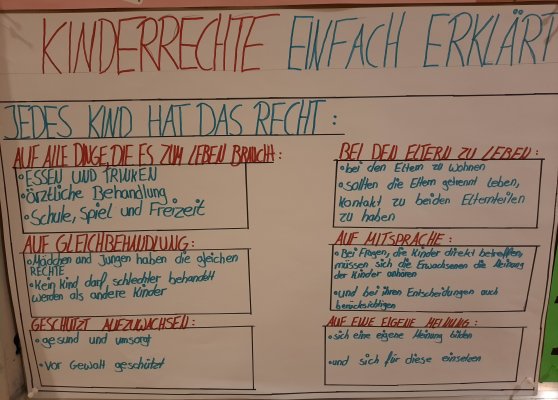 KINDERRECHTE EINFACH ERKLÄRT
JEDES KIND HAT DAS RECHT:
AUF ALLE DINGE, DIE ES ZUM LEBEN BRAUCHT:
• ESSEN UND TRINKEN
• ärztliche Behandlung
• Schule, Spiel und Freizeit
AUF GLEICHBEHANDLUNG:
• Mädchen und Jungen haben die gleichen
RECHTE
• Kein Kind darf schlechter behandelt
werden als andere Kinder
GESCHÜTZT AUFZUWACHSEN:
• gesund und umsorgt
• Vor Gewalt geschützt
BEI DEN ELTERN ZU LEBEN:
• bei den Eltern zu wohnen
• sollten die Eltern getrennt leben,
Kontakt zu beiden Elternteilen
zu haben
AUF MITSPRACHE:
• Bei Fragen, die Kinder direkt betreffen,
müssen sich die Erwachsenen die Meinung
der Kinder anhören
• und bei ihren Entscheidungen auch
berücksichtigen
AUF EINE EIGENE MEINUNG:
• sich eine eigene Meinung bilden
• und sich für diese einsetzen